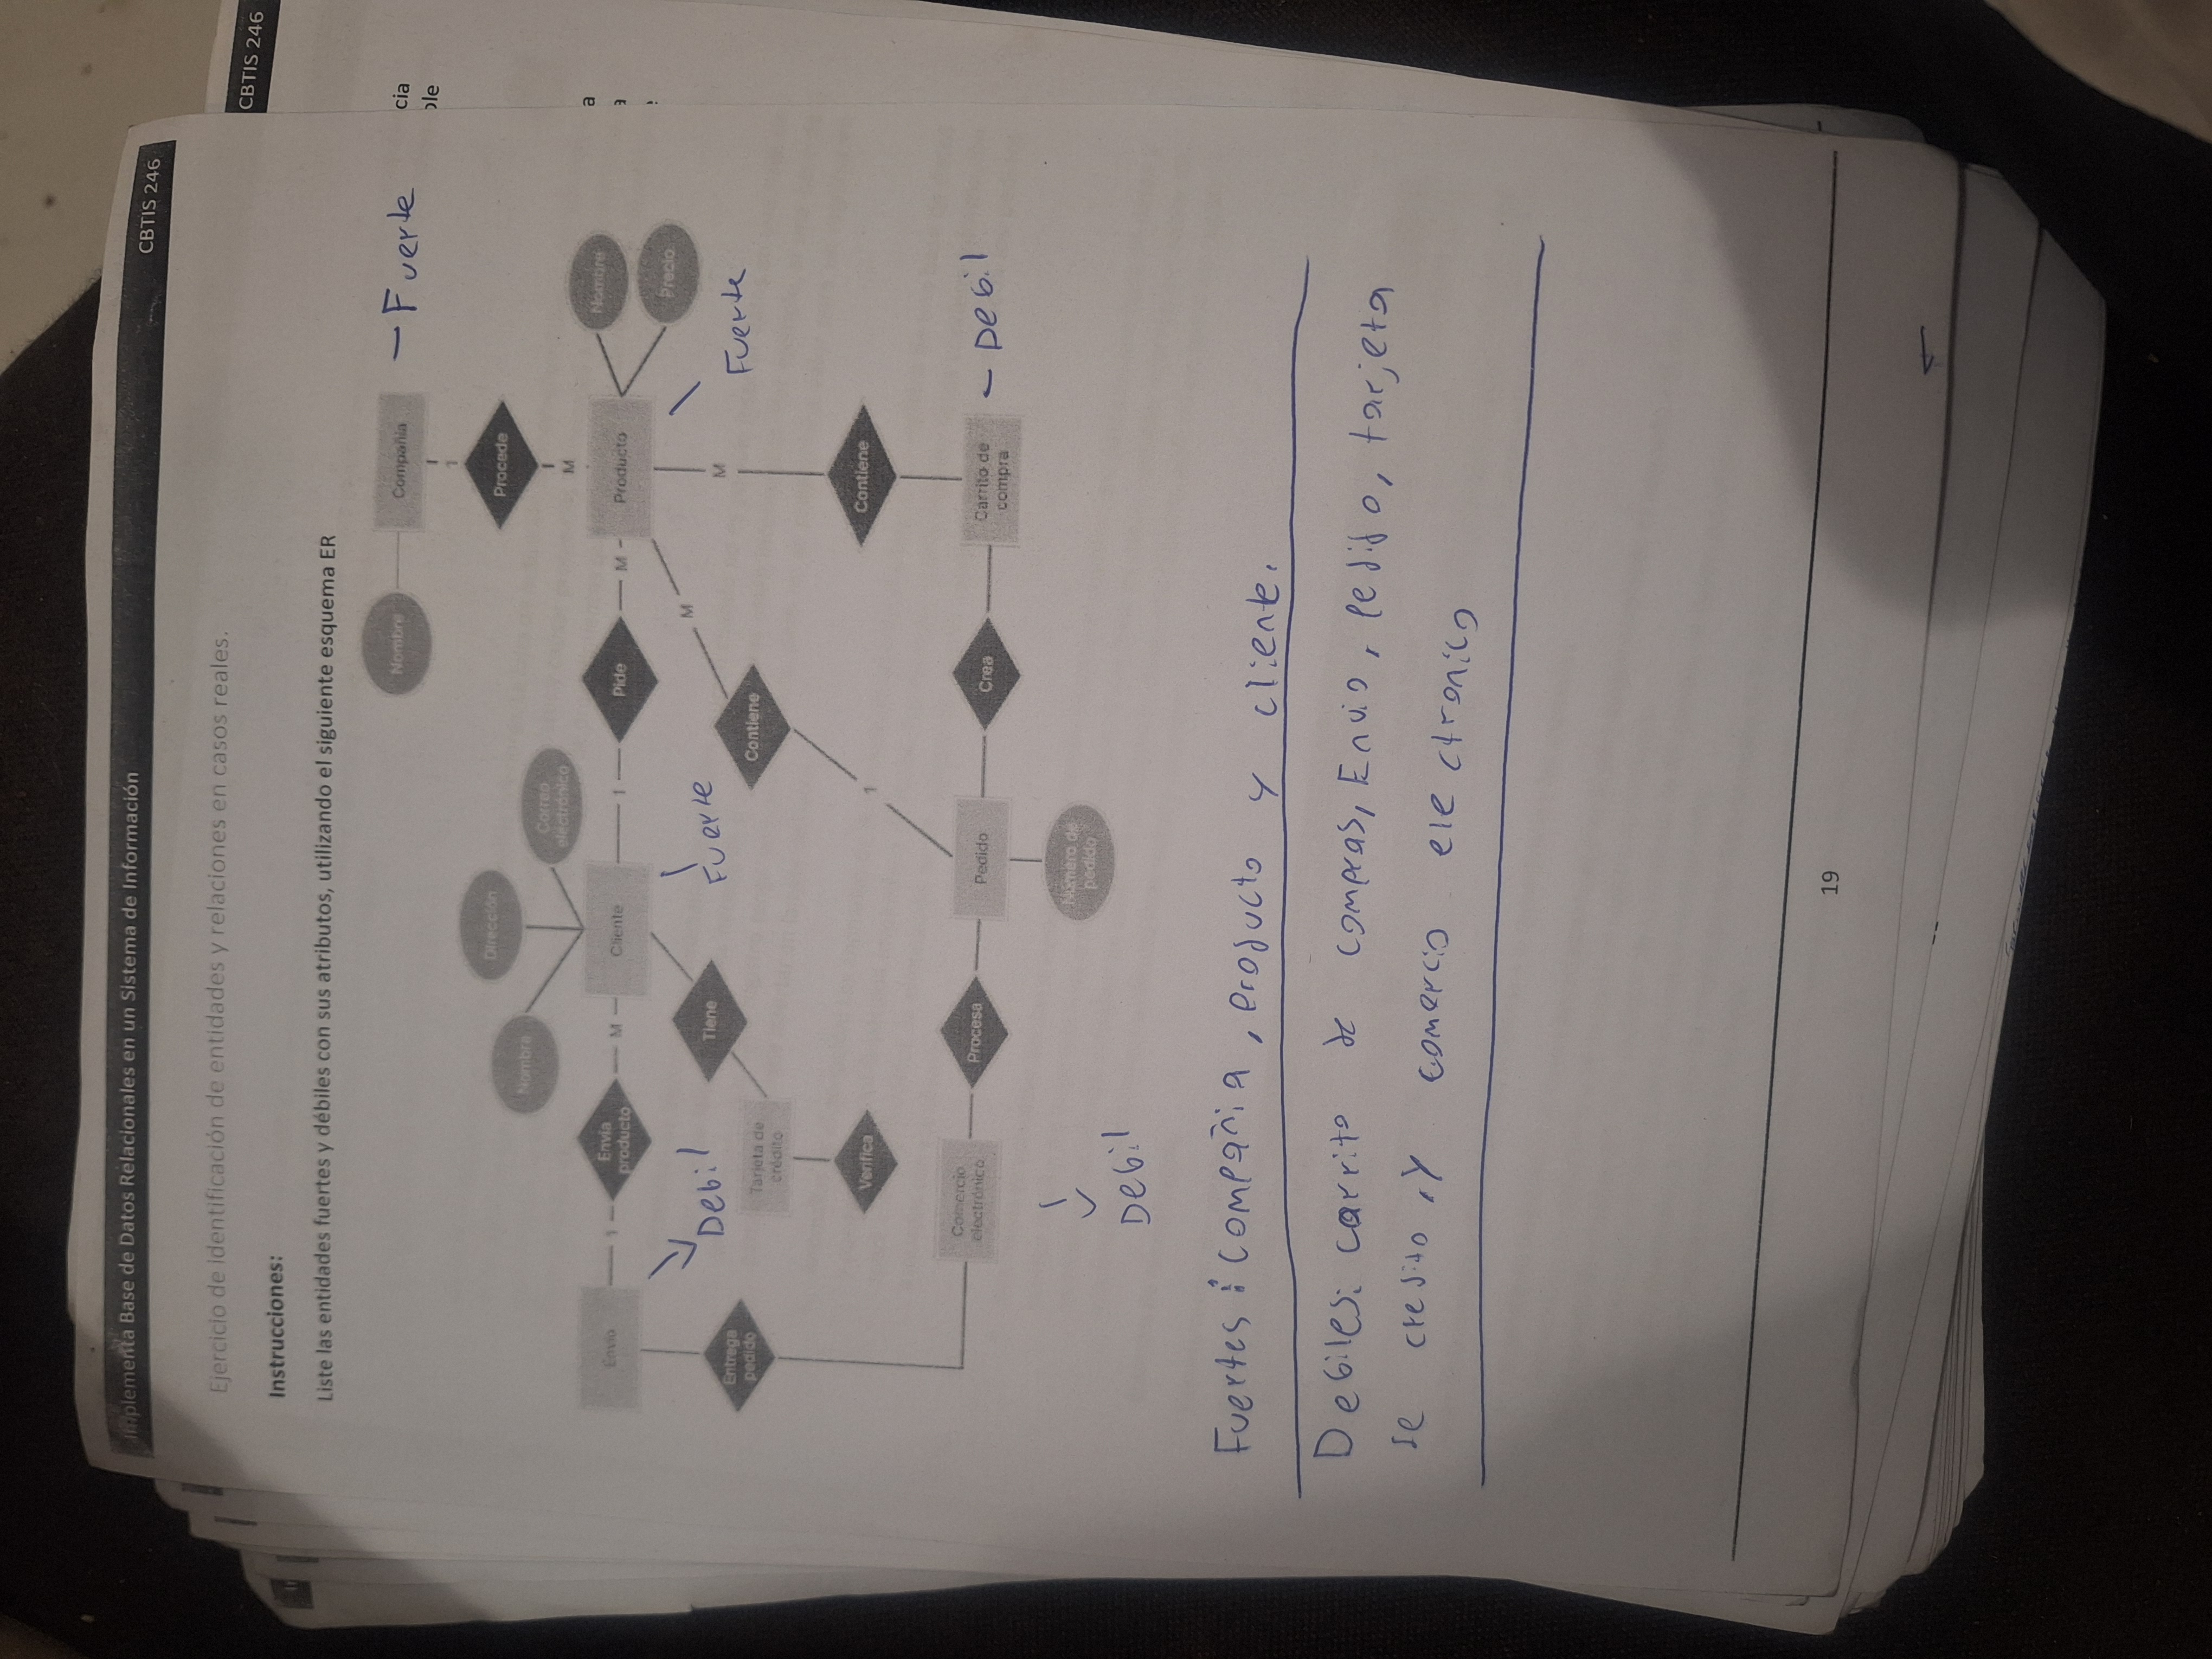 Implementa Base de Datos Relacionales en un Sistema de Información
CBTIS 246
CBTIS 246
Ejercicio de identificación de entidades y relaciones en casos reales.
Instrucciones:
Liste las entidades fuertes y débiles con sus atributos, utilizando el siguiente esquema ER
Nombre
Compañia
- Fuerte
cia
ble
1
Procede
M
Dirección
Nombre
Correo
electrónico
Envío
1
Envía
producto
M
Cliente
1
Pide
M
Producto
Nombre
Precio
a
a
e
Debil
Fuerte
Fuerte
Tiene
M
M
Entrega
pedido
Tarjeta de
crédito
Contiene
Verifica
1
Contiene
Comercio
electrónico
Procesa
Pedido
Crea
Carrito de
compra
- Debil
Número de
pedido
Debil
Fuertes: compañia, producto y cliente.
Debiles: carrito de compras, Envio, Pedido, tarjeta
de credito, y comercio electronico
19